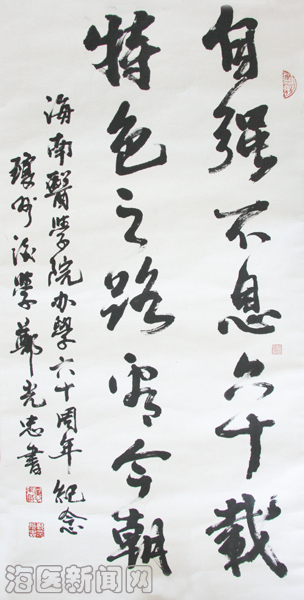 自强不息六十载
特色之路看今朝
海南醫学院办學六十周年纪念
瓊州後学鄭光忠書
海医新闻网